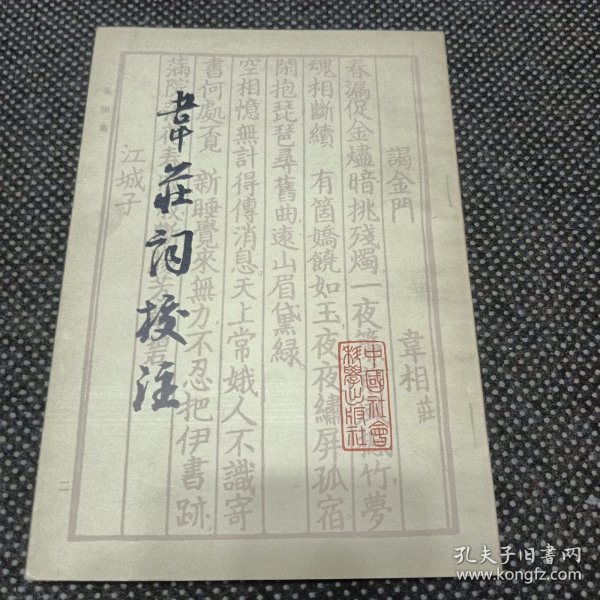 韋莊詞校注
中國社會
科學出版社
謁金門 韋相莊
春漏促金燼暗挑殘燭一夜簾 竹夢
魂相斷續 有箇嬌饒如玉夜夜繡屏孤宿
閑抱琵琶尋舊曲遠山眉黛綠
空相憶無計得傳消息天上常娥人不識寄
書何處覓 新睡覺來無力不忍把伊書跡
滿院 春
江城子
二
孔夫子旧书网
www.kongfz.com